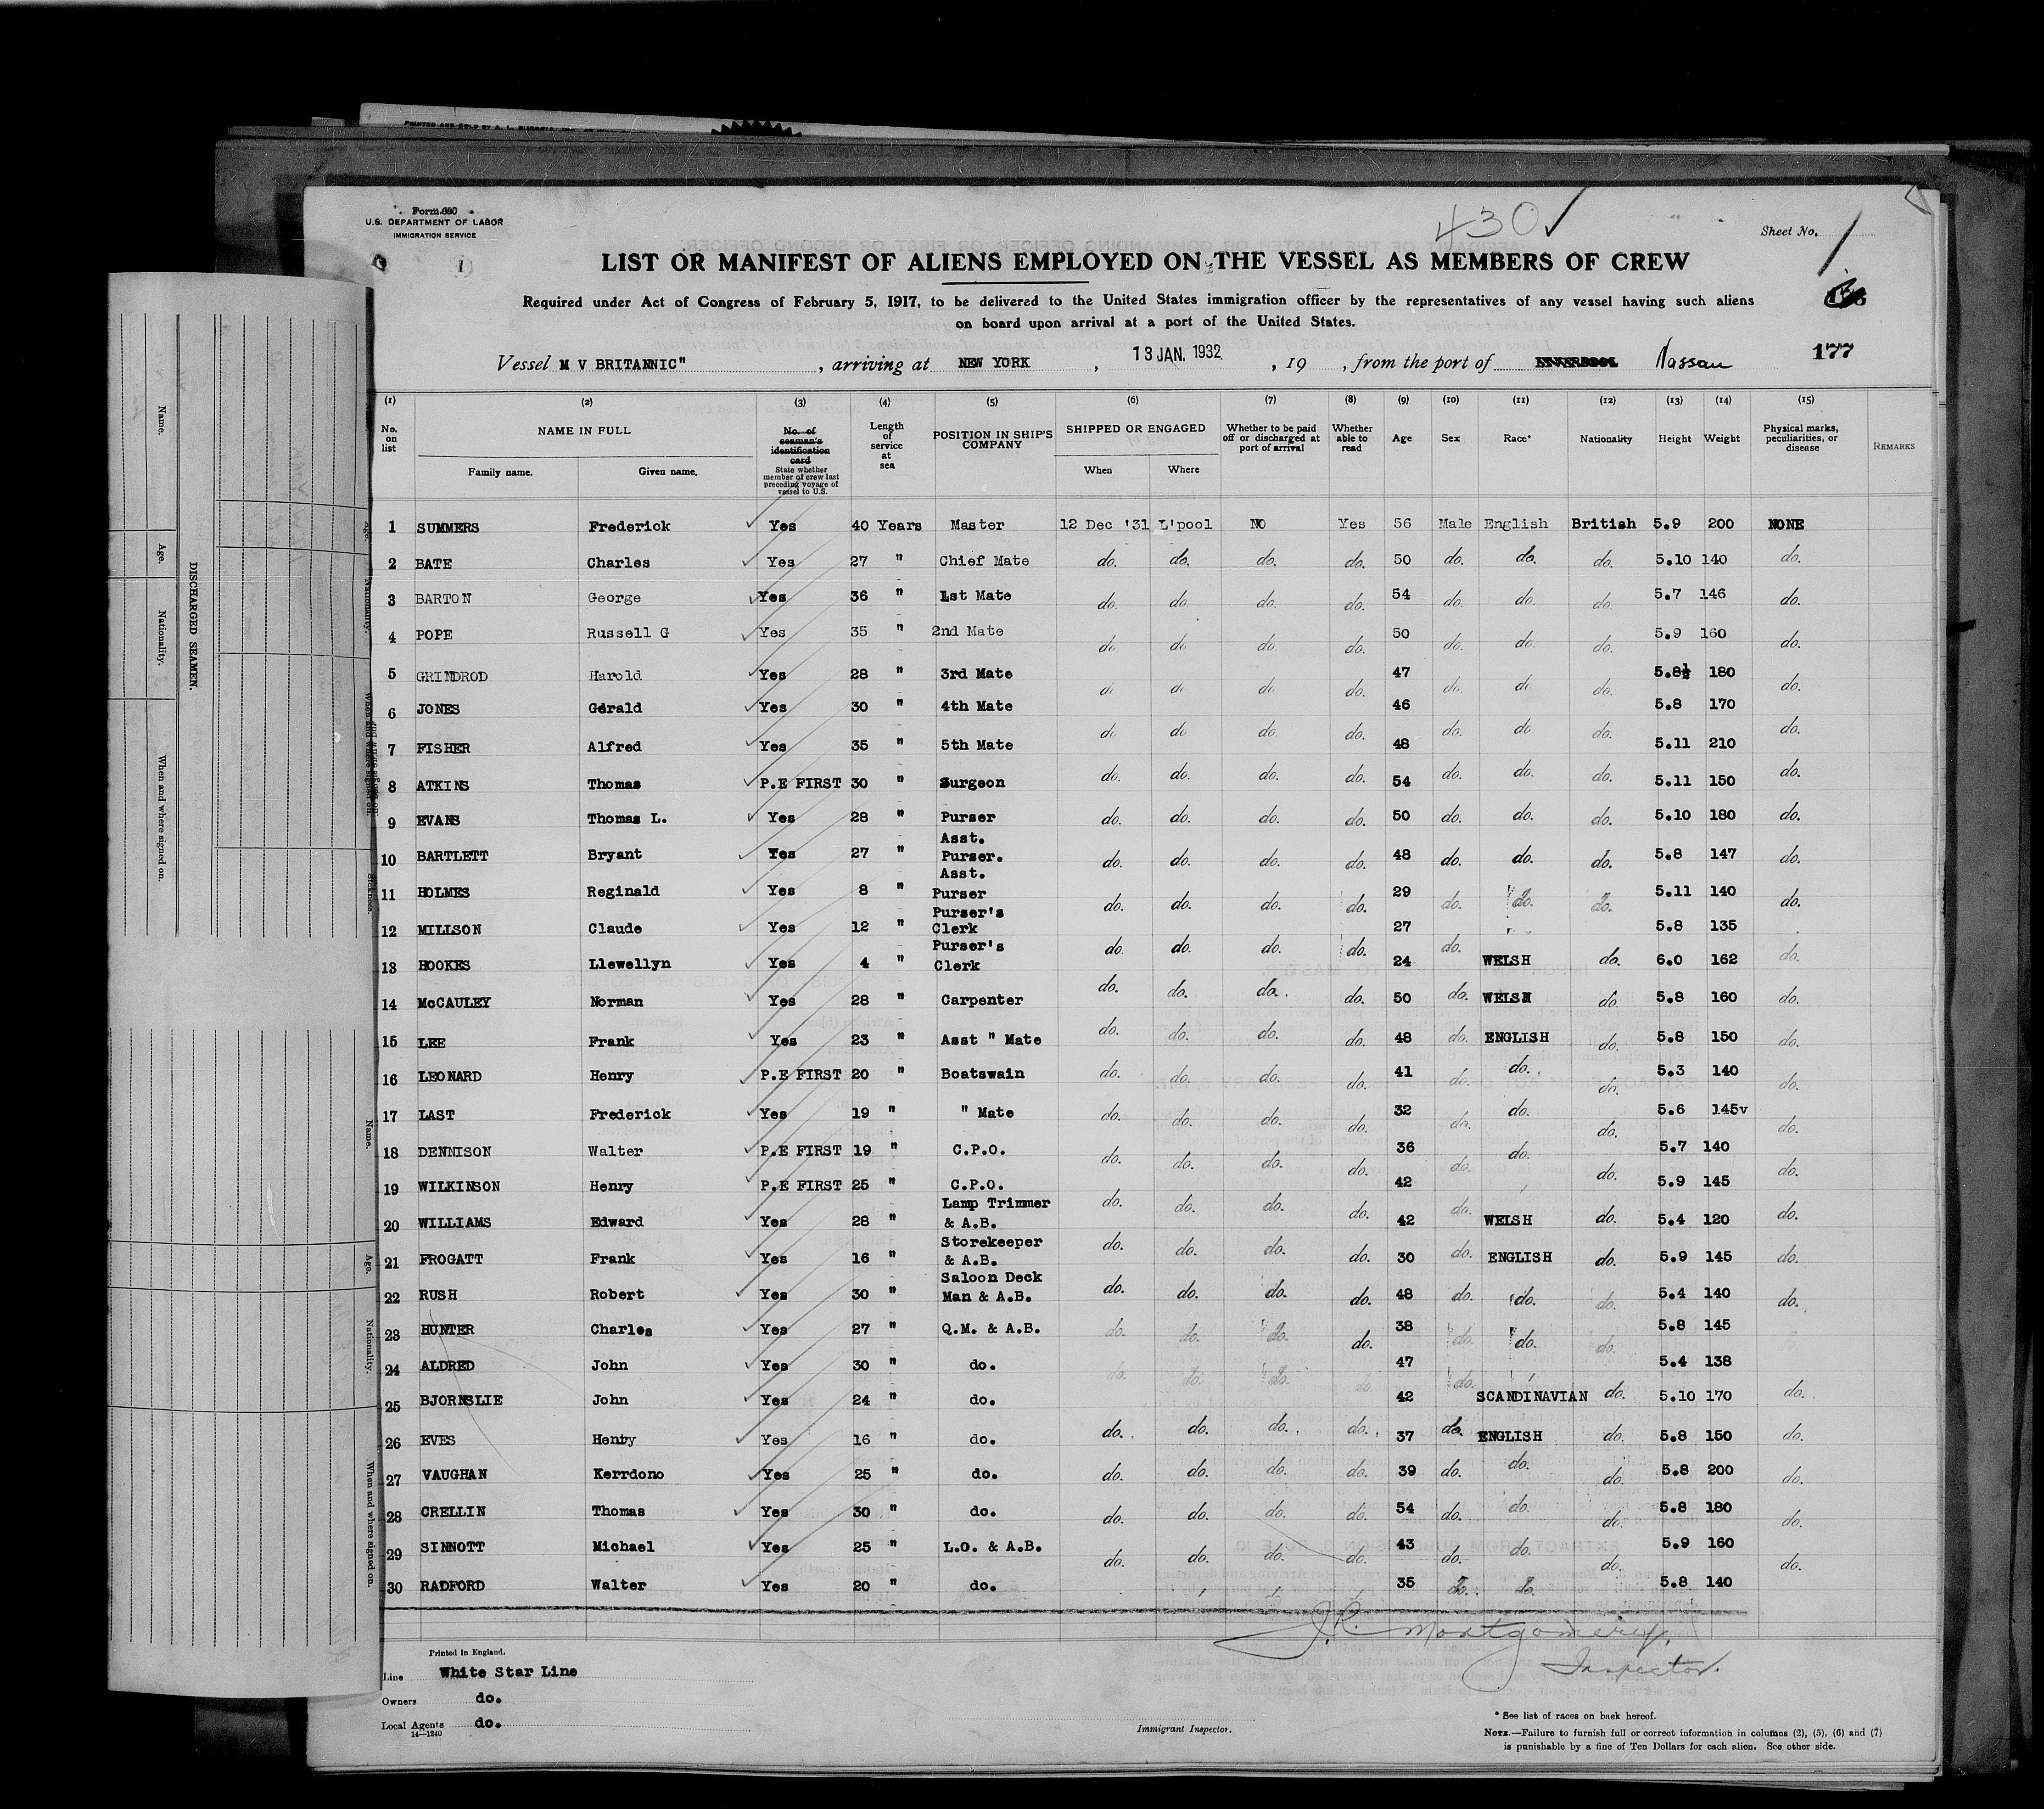 PRINTED AND SOLD BY A. L. RUSSELL,
Form 680
U.S. DEPARTMENT OF LABOR
IMMIGRATION SERVICE
430
Sheet No. 1
LIST OR MANIFEST OF ALIENS EMPLOYED ON THE VESSEL AS MEMBERS OF CREW
Required under Act of Congress of February 5, 1917, to be delivered to the United States immigration officer by the representatives of any vessel having such aliens
on board upon arrival at a port of the United States.
177
Vessel M V BRITANNIC" , arriving at NEW YORK , 13 JAN. 1932 , 19 , from the port of LIVERPOOL Nassau
(1) (2) (3) (4) (5) (6) (7) (8) (9) (10) (11) (12) (13) (14) (15)
No. on list NAME IN FULL Family name. Given name. No. of seaman's identification card State whether member of crew last preceding voyage of vessel to U.S. Length of service at sea POSITION IN SHIP'S COMPANY SHIPPED OR ENGAGED When Where Whether to be paid off or discharged at port of arrival Whether able to read Age Sex Race* Nationality Height Weight Physical marks, peculiarities, or disease REMARKS
1 SUMMERS Frederick Yes 40 Years Master 12 Dec '31 L'pool NO Yes 56 Male English British 5.9 200 NONE
2 BATE Charles Yes 27 " Chief Mate do. do. do. do. 50 do. do. do. 5.10 140 do.
3 BARTON George Yes 36 " 1st Mate do. do. do. do. 54 do. do. do. 5.7 146 do.
4 POPE Russell G Yes 35 " 2nd Mate do. do do. do. 50 do. do. do. 5.9 160 do.
5 GRINDROD Harold Yes 28 " 3rd Mate do do do do. 47 do. do do. 5.8½ 180 do.
6 JONES Gerald Yes 30 " 4th Mate do do do. do. 46 do. do do. 5.8 170 do.
7 FISHER Alfred Yes 35 " 5th Mate 48 5.11 210
8 ATKINS Thomas P.E FIRST 30 " Surgeon do. do. do. do. 54 do. do. do. 5.11 150 do.
9 EVANS Thomas L. Yes 28 " Purser do. do. do. do. 50 do. do. do. 5.10 180 do.
10 BARTLETT Bryant Yes 27 " Asst. Purser. do. do. do. do. 48 do. do. do. 5.8 147 do.
11 HOLMES Reginald Yes 8 " Asst. Purser do. do. do. do. 29 do. do. do. 5.11 140 do.
12 MILLSON Claude Yes 12 " Purser's Clerk 27 5.8 135
13 HOOKES Llewellyn Yes 4 " Purser's Clerk do. do. do. do. 24 do. WELSH do. 6.0 162 do.
14 McCAULEY Norman Yes 28 " Carpenter do. do. do. do. 50 do. WELSH do. 5.8 160 do.
15 LEE Frank Yes 23 " Asst " Mate do. do. do. do. 48 do. ENGLISH do. 5.8 150 do.
16 LEONARD Henry P.E FIRST 20 " Boatswain do. do. do. do. 41 do. do. do. 5.3 140 do.
17 LAST Frederick Yes 19 " " Mate do. do. do. do. 32 do. do. do. 5.6 145v do.
18 DENNISON Walter P.E FIRST 19 " C.P.O. do. do. do. do. 36 do. do. do. 5.7 140 do.
19 WILKINSON Henry P.E FIRST 25 " C.P.O. do. do. do. do. 42 5.9 145
20 WILLIAMS Edward Yes 28 " Lamp Trimmer & A.B. 42 do. WELSH do. 5.4 120 do.
21 FROGATT Frank Yes 16 " Storekeeper & A.B. do. do. do. do. 30 do. ENGLISH do. 5.9 145 do.
22 RUSH Robert Yes 30 " Saloon Deck Man & A.B. do. do. do. do. 48 do. do. do. 5.4 140 do.
23 HUNTER Charles Yes 27 " Q.M. & A.B. do. do. do. do. 38 do. do. do. 5.8 145
24 ALDRED John Yes 30 " do. do. do. do. do. 47 do. 5.4 138
25 BJORNSLIE John Yes 24 " do. 42 SCANDINAVIAN do. 5.10 170 do.
26 EVES Henry Yes 16 " do. do. do. do. do. 37 do. ENGLISH do. 5.8 150 do.
27 VAUGHAN Kerrdono Yes 25 " do. do. do. do. do. 39 do. do. do. 5.8 200 do.
28 CRELLIN Thomas Yes 30 " do. do. do. do. do. 54 do. do. do. 5.8 180 do.
29 SINNOTT Michael Yes 25 " L.O. & A.B. do. do. do. do. 43 do. do. do. 5.9 160 do.
30 RADFORD Walter Yes 20 " do. 35 do. do. 5.8 140
J.C. Montgomery.
Inspector.
Printed in England.
Line White Star Line
Owners do.
Local Agents do.
14—1240
Immigrant Inspector.
* See list of races on back hereof.
NOTE.—Failure to furnish full or correct information in columns (2), (5), (6) and (7)
is punishable by a fine of Ten Dollars for each alien. See other side.
DISCHARGED SEAMEN.
Name.
Age.
Nationality.
When and where signed on.
Name.
Age.
Nationality.
When and where signed on.